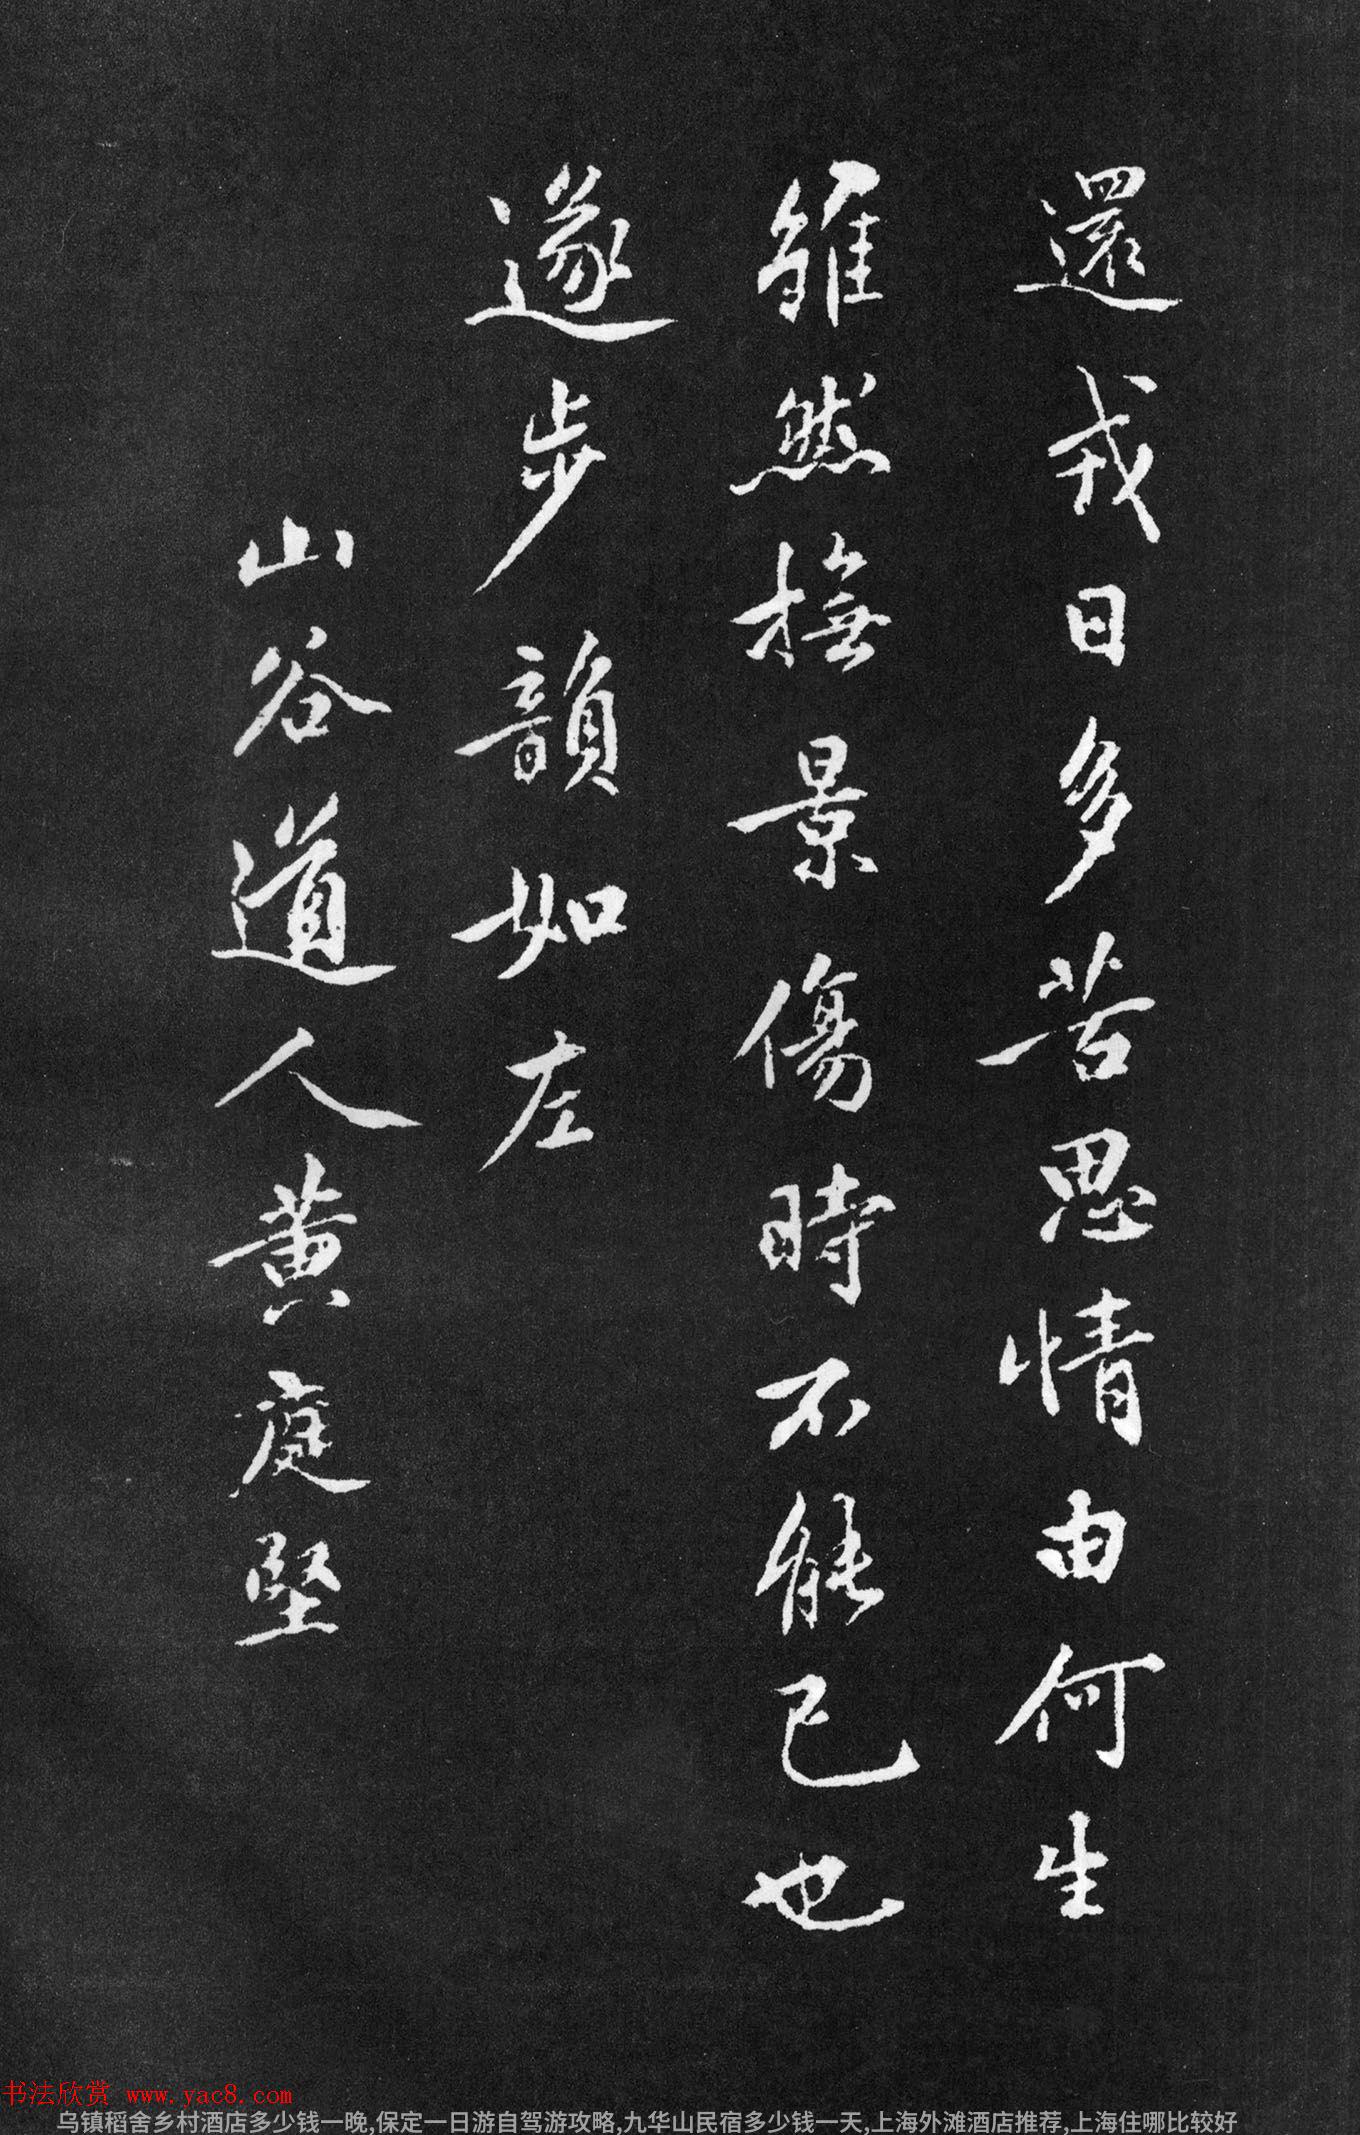 還戎日多苦思情由何生
雖然撫景傷時不能已也
遂步韻如左
山谷道人黄庭堅
书法欣赏 www.yac8.com
乌镇稻舍乡村酒店多少钱一晚,保定一日游自驾游攻略,九华山民宿多少钱一天,上海外滩酒店推荐,上海住哪比较好